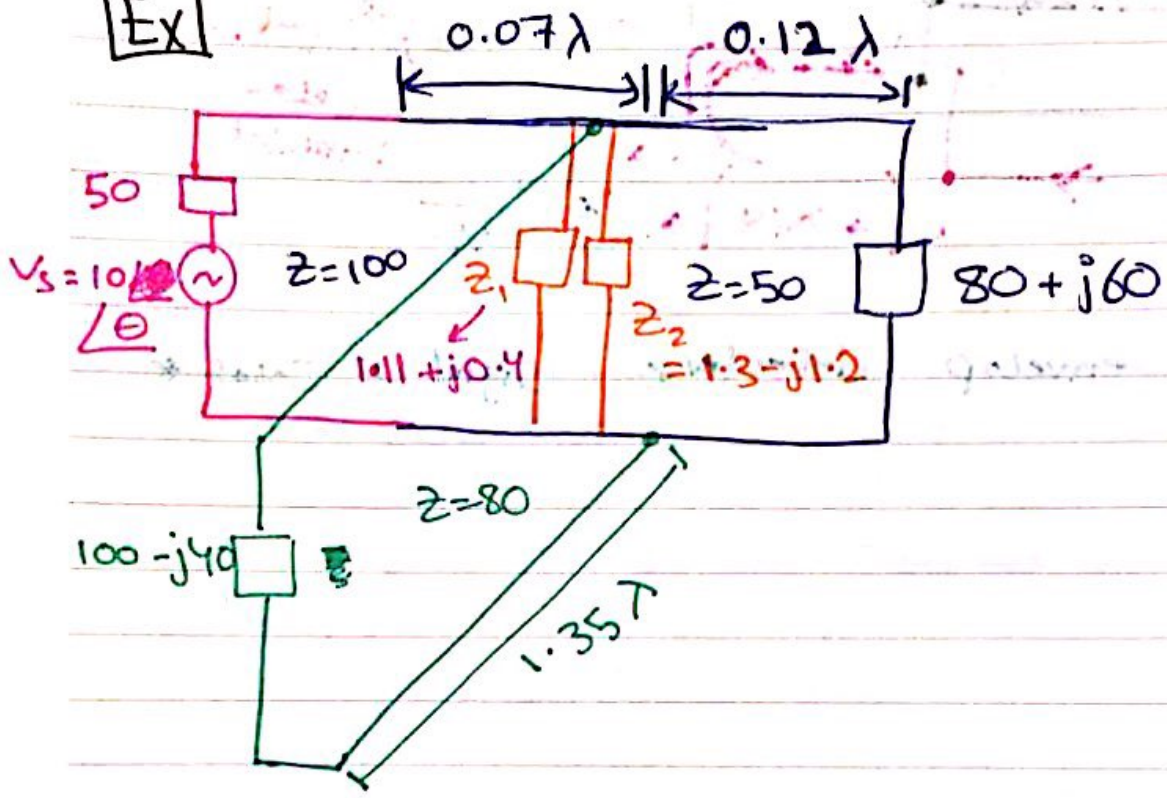 Ex
0.07λ
0.12λ
50
Vs=10
/θ
Z=100
Z1
1.11+j0.4
Z2
=1.3-j1.2
Z=50
80+j60
Z=80
100-j40
1.35λ